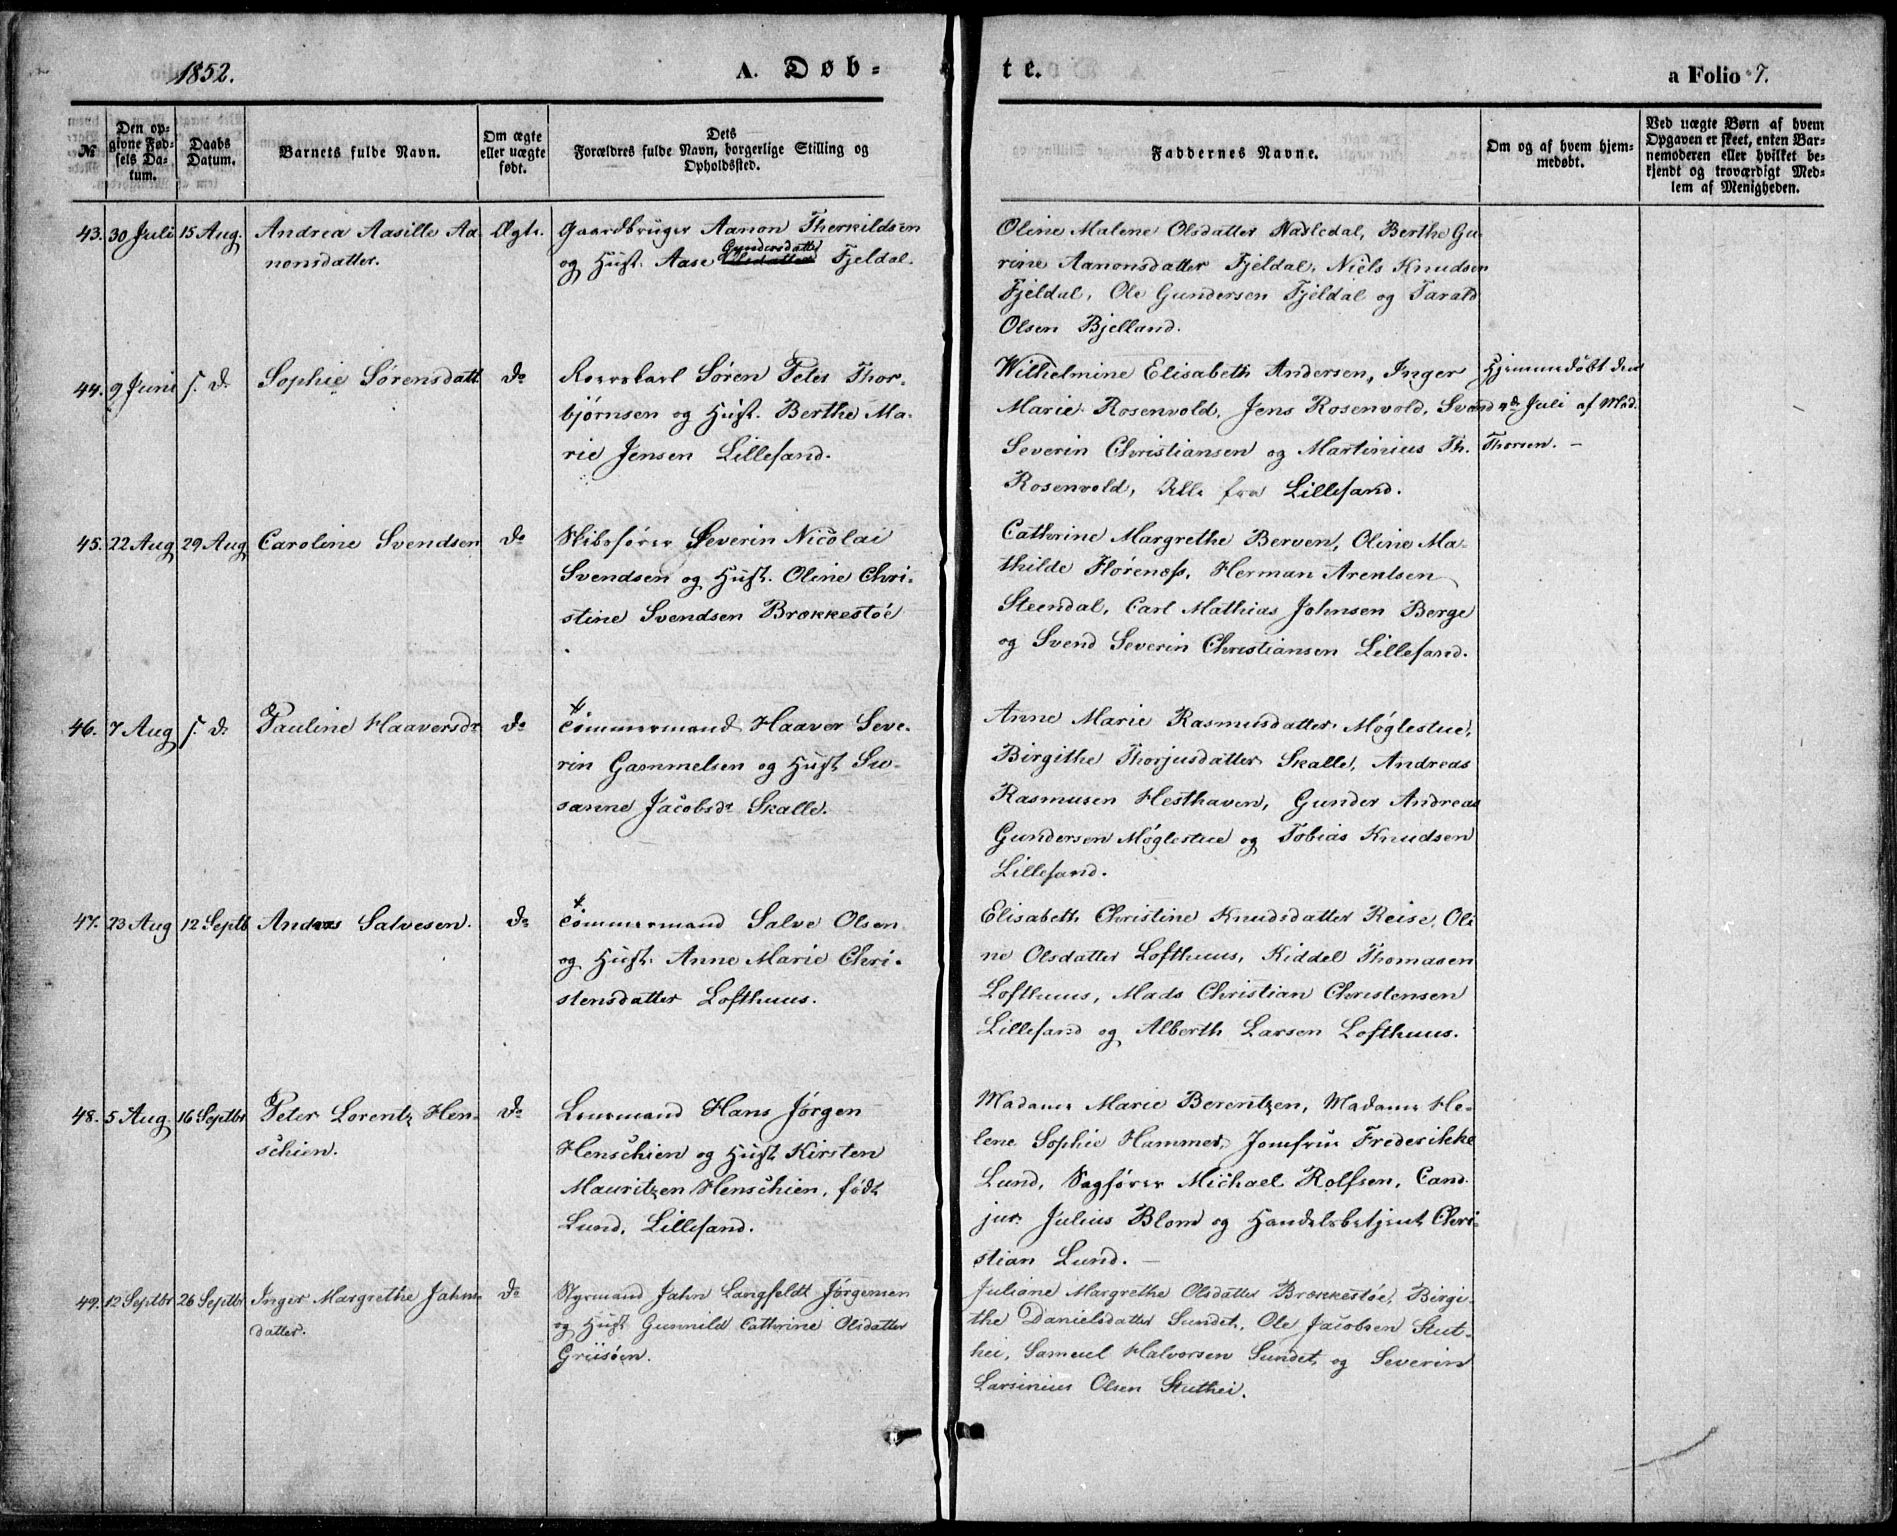 1852.
A. Døb-
te.
a Folio 7.
№
Den op-
givne Fød-
sels Da-
tum.
Daabs
Datum.
Barnets fulde Navn.
Om ægte
eller uægte
født.
Dets
Forældres fulde Navn, borgerlige Stilling og
Opholdssted.
Faddernes Navne.
Om og af hvem hjem-
medøbt.
Ved uægte Børn af hvem
Opgaven er skeet, enten Bar-
nemoderen eller hvilket be-
kjendt og troværdigt Med-
lem af Menigheden.
43. 30 Juli 15 Aug.
Andrea Aasille Aa-
nonsdatter.
Ægte.
Gaardbruger Aanon Therkildsen
Gundersdatter
og Hust. Aase Olsdatter Fjeldal.
Oline Malene Olsdatter Nadledal, Berthe Gu-
rine Aanonsdatter Fjeldal, Niels Knudsen
Fjeldal, Ole Gundersen Fjeldal og Tarald
Olsen Bjelland.
44. 9 Juni s. d.
Sophie Sørensdatt
do
Roerskarl Søren Peter Thor-
bjørnsen og Hust. Berthe Ma-
rie Jensen Lillesand.
Wilhelmine Elisabeth Andersen, Inger
Marie Rosenvold, Jens Rosenvold, Svend
Severin Christiansen og Martinius Th.
Rosenvold, Alle fra Lillesand.
Hjemmedøbt den
Juli af Mad.
Thorsen. –
45. 22 Aug 29 Aug
Caroline Svendsen
do
Skibsfører Severin Nicolai
Svendsen og Hust. Oline Chri-
stine Svendsen Brækkestøe
Cathrine Margrethe Berven, Oline Ma-
thilde Florenæs, Herman Arentsen
Steendal, Carl Mathias Johnsen Berge
og Svend Severin Christiansen Lillesand.
46. 7 Aug s. d.
Pauline Haaversdr
do
Tømmermand Haaver Seve-
rin Gammelsen og Hust Su-
sanne Jacobsdr Skalle.
Anne Marie Rasmusdatter Møglestue,
Birgithe Thorjusdatter Skalle, Andreas
Rasmusen Hesthaven, Gunder Andreas
Gundersen Møglestue og Tobias Knudsen
Lillesand.
47. 23 Aug 12 Septb
Andreas Salvesen.
do
Tømmermand Salve Olsen
og Hust. Anne Marie Chri-
stensdatter Lofthuus.
Elisabeth Christine Knudsdatter Reise, Oli
ne Olsdatter Lofthuus, Kiddel Thomasen
Lofthuus, Mads Christian Christensen
Lillesand og Alberth Larsen Lofthuus.
48. 5 Aug. 16 Septbr
Peter Lorentz Hen-
schien.
do
Hans Jørgen
Henschien og Hust Kirsten
Mauritzen Henschien, født
Lund, Lillesand.
Madame Marie Berentzen, Madame He-
lene Sophie Hammer, Jomfrue Frederikke
Lund, Sagfører Michael Rolfsen, Cand.
jur. Julius Blom og Handelsbetjent Chri-
stian Lund. –
49. 12 Septbr 26 Septbr
Inger Margrethe Jahns-
datter.
do
Styrmand Jahn Langfeldt Jørgensen
og Hust Gunnild Cathrine Olsdatter
Griisöen.
Juliane Margrethe Olsdatter Brækkestøe, Birgi-
the Danielsdatter Sundet, Ole Jacobsen Stut-
hei, Samuel Halvorsen Sundet, og Severin
Larsinius Olsen Stuthei.